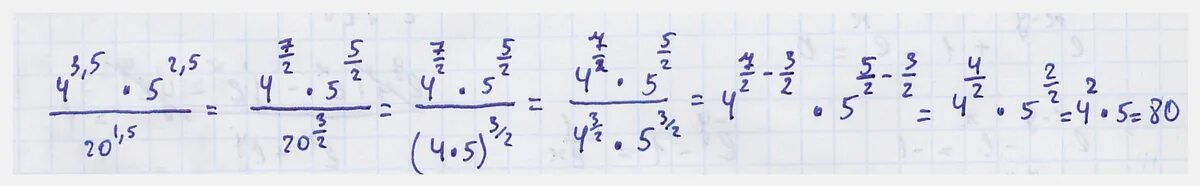 4^{3,5} · 5^{2,5} / 20^{1,5} = 4^{7/2} · 5^{5/2} / 20^{3/2} = 4^{7/2} · 5^{5/2} / (4·5)^{3/2} = 4^{7/2} · 5^{5/2} / 4^{3/2} · 5^{3/2} = 4^{7/2 - 3/2} · 5^{5/2 - 3/2} = 4^{4/2} · 5^{2/2} = 4^2 · 5 = 80